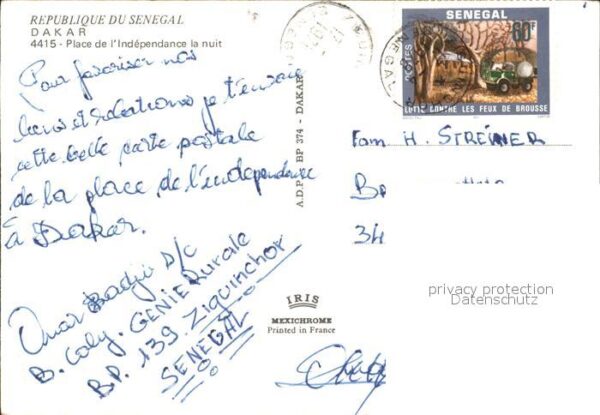 REPUBLIQUE DU SENEGAL
DAKAR
4415 - Place de l'Indépendance la nuit
Pour favoriser nos
liens et relations je t'envoie
cette belle carte postale
de la place de l'independance
à Dakar.
Omar Badji S/C
B. Coly. GENIE Rurale
B.P. 139 Ziguinchor
SENEGAL
A.D.P. BP 374 - DAKAR
IRIS
MEXICHROME
Printed in France
SENEGAL
60F
POSTES
LUTTE CONTRE LES FEUX DE BROUSSE
Fam H. STREINER
BP
34
privacy protection
Datenschutz